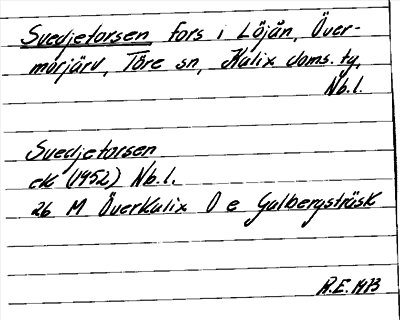 Svedjeforsen fors i Löjån, Över-
morjärv, Töre sn, Kalix doms. tg,
Nb.l.
Svedjeforsen
ek (1952) Nb.l.
26 M Överkalix O e Galbergsträsk
R.E. 1973